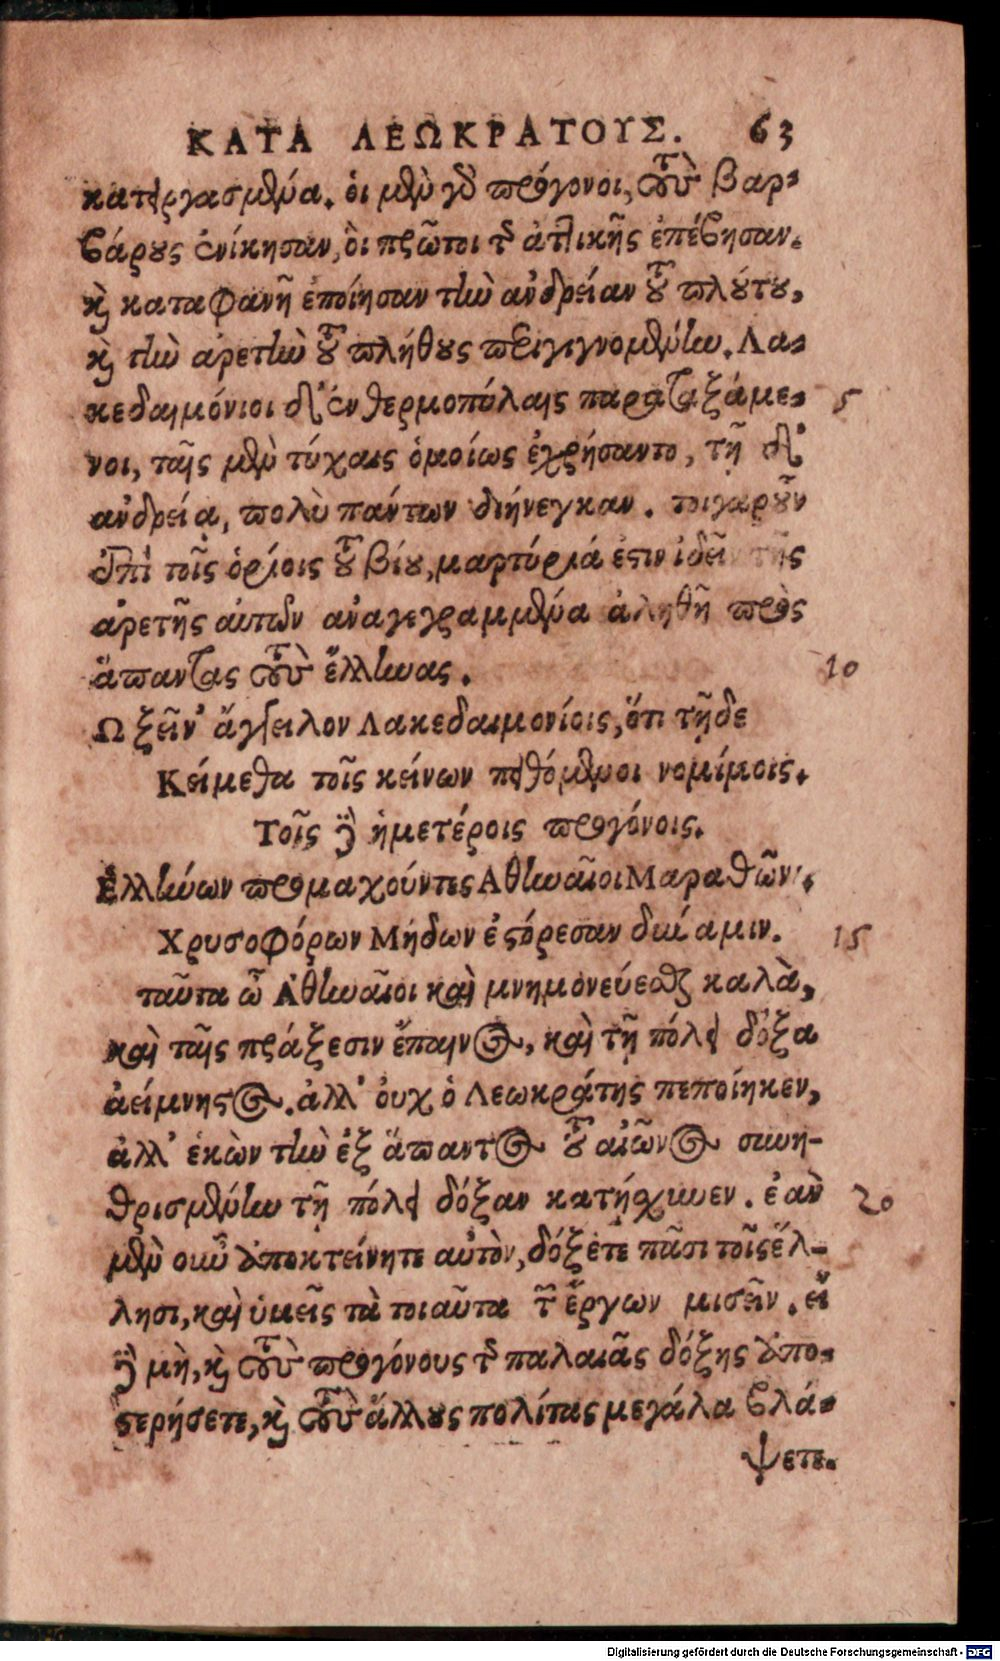 ΚΑΤΑ ΛΕΩΚΡΑΤΟΥΣ. 63
κατειργασμένα. ὁι μὲν γὸ πρόγονοι, τοὺς βαρ-
βάρους ἐνίκησαν, ὃι πρῶτοι τῆς ἀτικῆς ἐπέβησαν.
καὶ καταφανῆ ἐποίησαν τὴν ανδρείαν τοῦ πλούτου,
καὶ τὴν αρετὴν τοῦ πλήθους περιγιγνομένην. Λα-
κεδαιμόνιοι δ' ἐν θερμοπύλαις παραταξάμε- 5
νοι, ταῖς μὲν τύχαις ὁμοίως ἐχρήσαντο, τῇ δ'
ανδρείᾳ, πολὺ πάντων διήνεγκαν. τοιγαροῦν
ἐπὶ τοῖς ὁρίοις τοῦ βίου, μαρτύριά ἐστιν ἰδεῖν τῆς
ἀρετῆς ἀυτῶν ἀναγεγραμμένα ἀληθῆ πρὸς
ἅπαντας τοὺς ἕλληνας. 10
Ω ξεῖν' ἄγγειλον Λακεδαιμονίοις, ὅτι τῇδε
Κείμεθα τοῖς κείνων πειθόμενοι νομίμοις.
Τοῖς δὲ ἡμετέροις προγόνοις.
Ἑλλήνων προμαχοῦντες Ἀθηναῖοι Μαραθῶνι.
Χρυσοφόρων Μήδων ἐστόρεσαν δύναμιν. 15
ταῦτα ὦ Ἀθηναῖοι καὶ μνημονεύεσθαι καλὰ,
καὶ ταῖς πράξεσιν ἔπαινος, καὶ τῇ πόλει δόξα
ἀείμνηστος. ἀλλ' ὀυχ ὁ Λεωκράτης πεποίηκεν,
ἀλλ' ἑκὼν τὴν ἐξ ἅπαντος τοῦ αἰῶνος συνη-
θρισμένην τῇ πόλει δόξαν κατῄχυνεν. ἐὰν 20
μὲν οὖν ἀποκτείνητε αὐτὸν, δόξετε πᾶσι τοῖς ἕλ-
λησι, καὶ ὑμεῖς τὰ τοιαῦτα τῶν ἔργων μισεῖν. εἰ
δὲ μὴ, καὶ τοὺς προγόνους τῆς παλαιᾶς δόξης ἀπο-
στερήσετε, καὶ τοὺς ἄλλους πολίτας μεγάλα βλά-
ψετε.
Digitalisierung gefördert durch die Deutsche Forschungsgemeinschaft - DFG